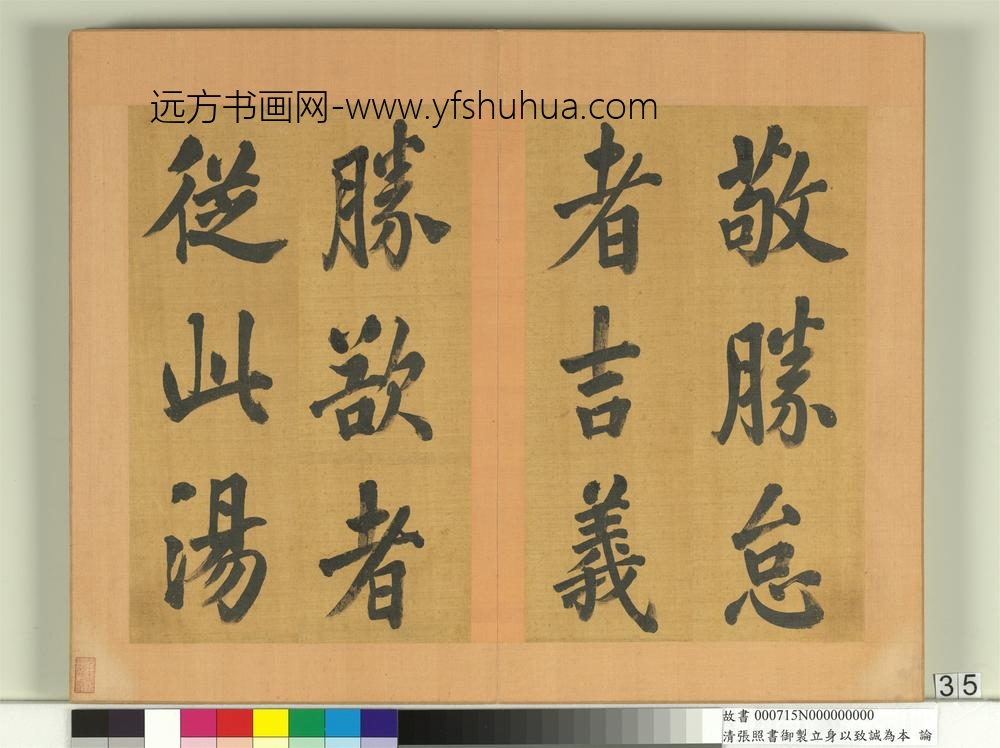 远方书画网-www.yfshuhua.com
敬勝怠
者吉義
勝欲者
從此湯
35
故書 000715N000000000
清張照書御製立身以致誠為本 論